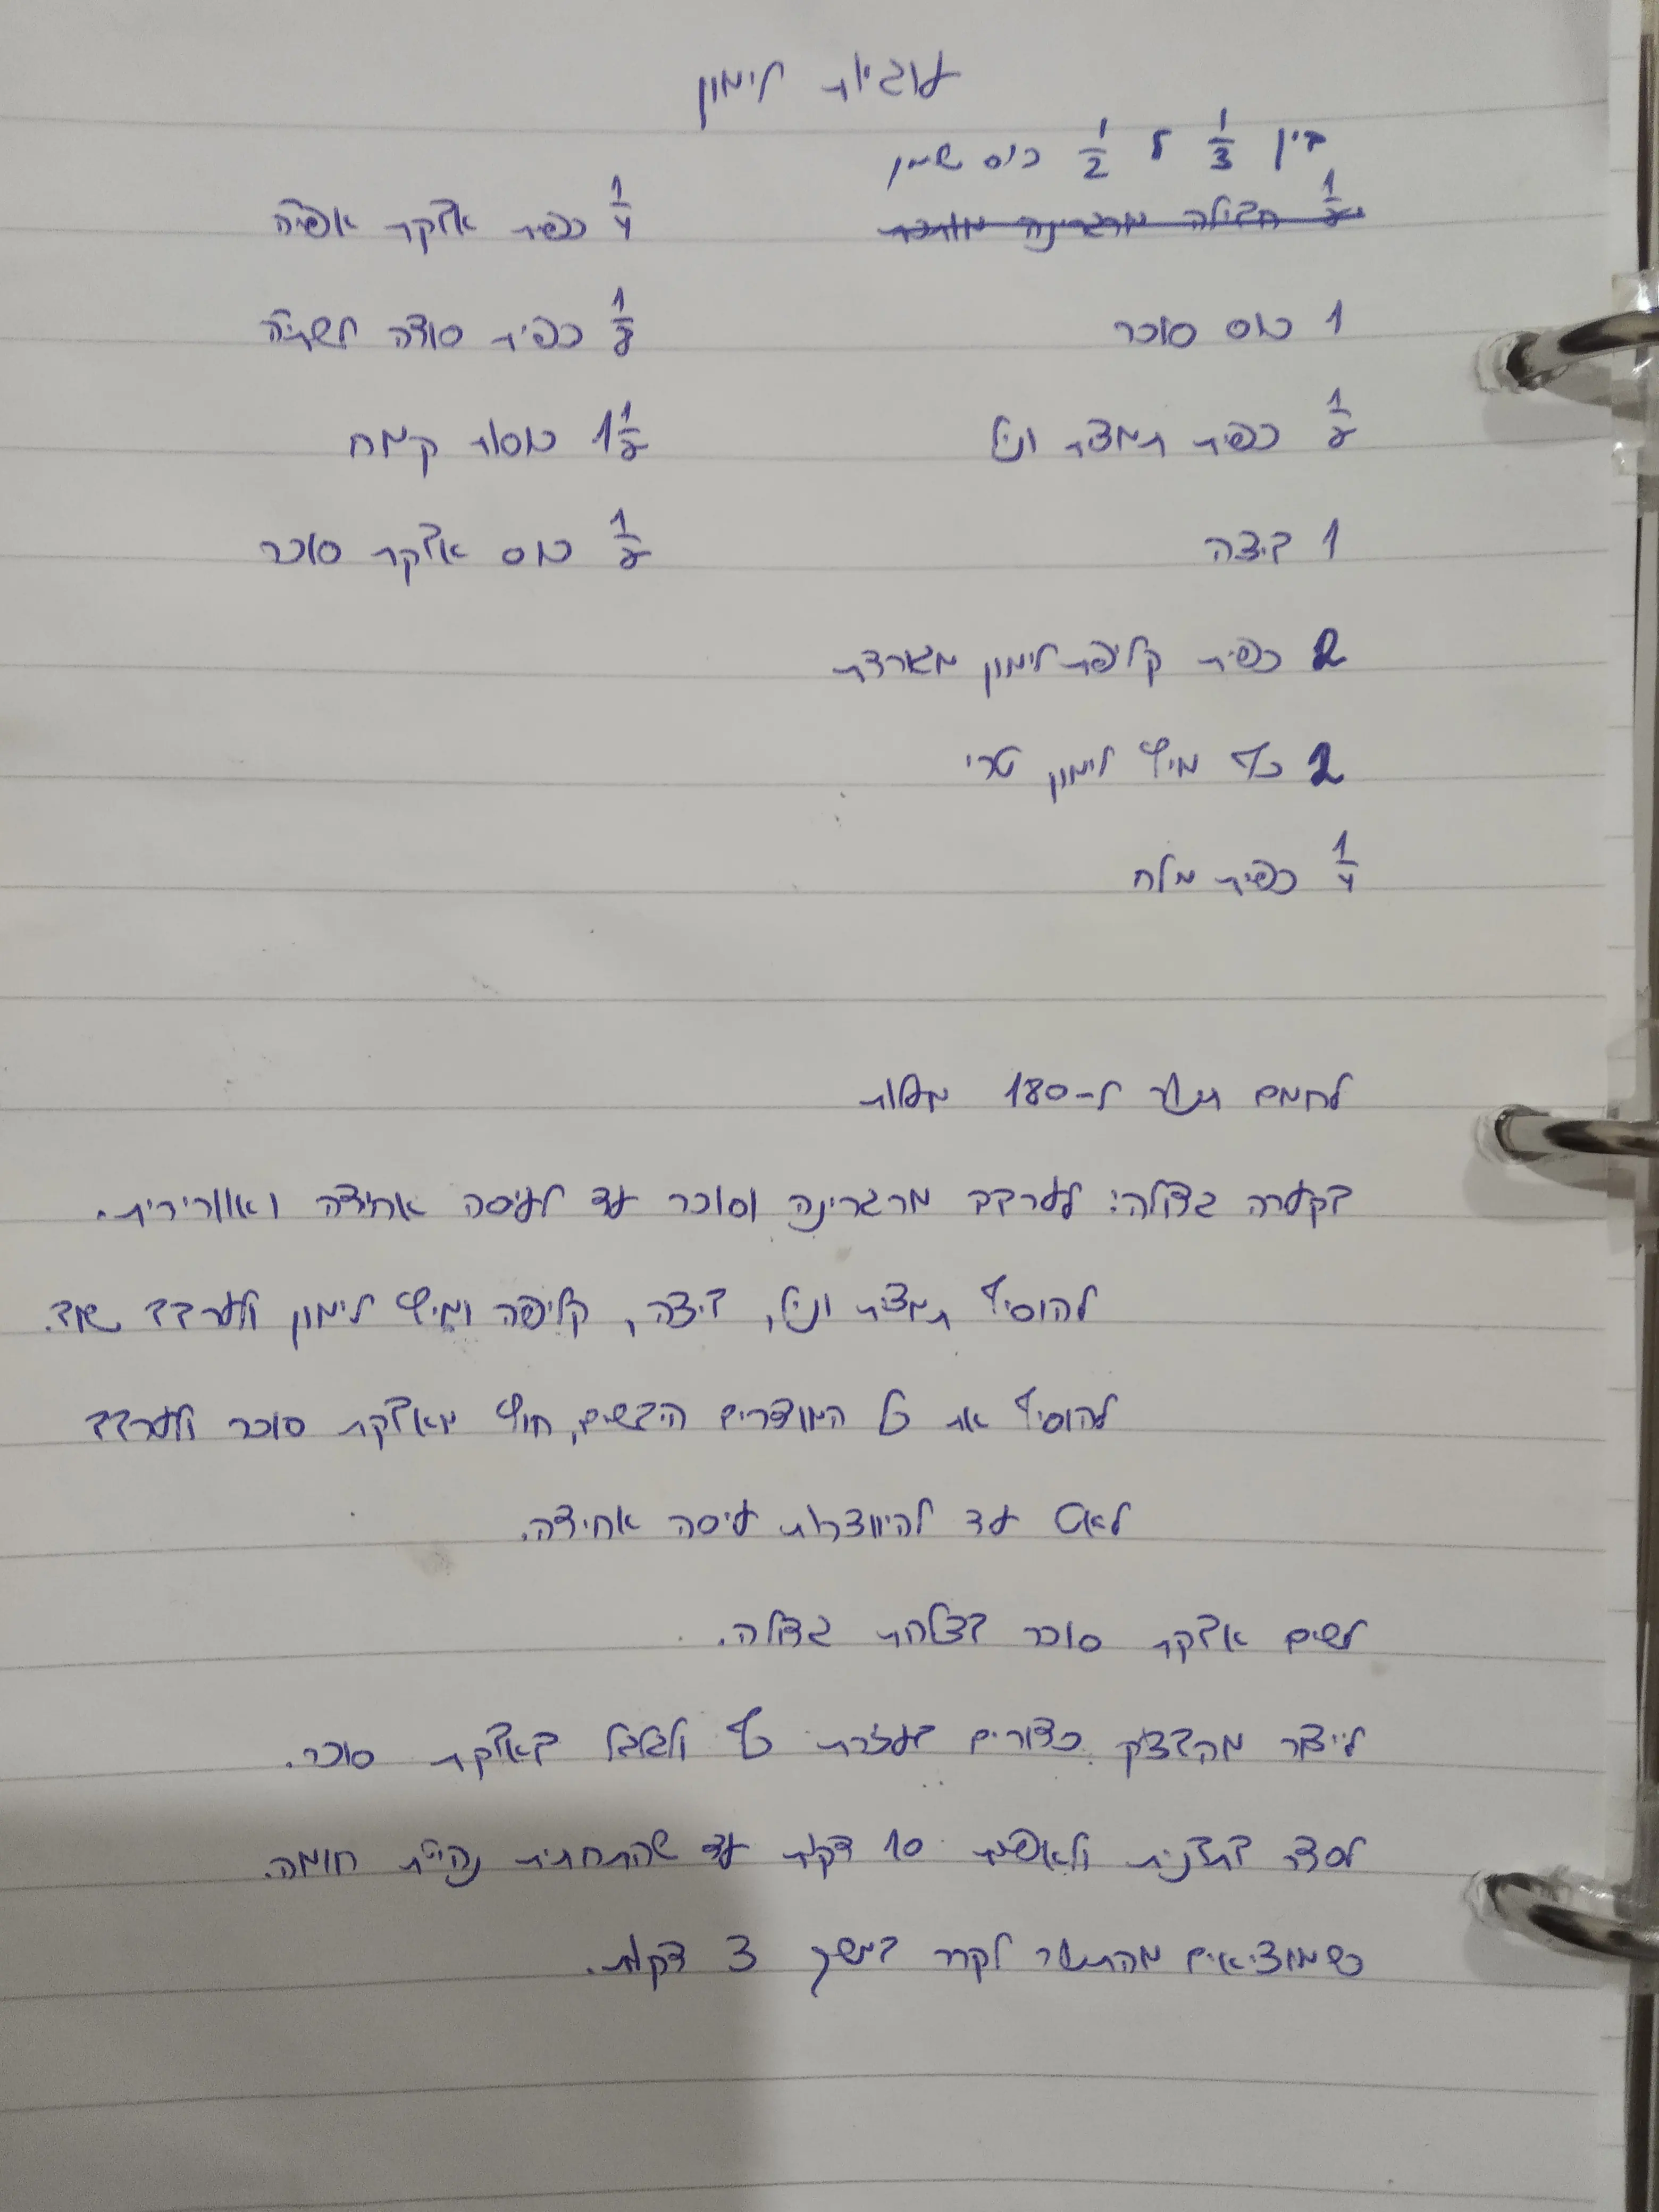 עוגיות לימון
בין 1/3 ל 1/2 כוס שמן
1/2 חבילה מרגרינה מומסת
1 כוס סוכר
1/2 כפית תמצת וניל
1 ביצה
2 כפית קליפת לימון מגורדת
2 כף מיץ לימון טרי
1/4 כפית מלח
1/4 כפית אבקת אפיה
1/8 כפית סודה לשתיה
1 1/2 כוסות קמח
1/2 כוס אבקת סוכר
לחמם תנור ל-180 מעלות
בקערה גדולה: לערבב מרגרינה וסוכר עד לעיסה אחידה ואוורירית.
להוסיף תמצית וניל, ביצה, קליפה ומיץ לימון ולערבב שוב.
להוסיף את כל המוצרים היבשים, חוץ מאבקת סוכר ולערבב
לאט עד להיווצרות עיסה אחידה.
לשים אבקת סוכר בצלחת גדולה.
לייצר מהבצק כדורים בעזרת כף ולגלגל באבקת סוכר.
לסדר בתבנית ולאפות 10 דקות עד שהתחתית נהיית חומה.
כשמוציאים מהתנור לקרר במשך 3 דקות.